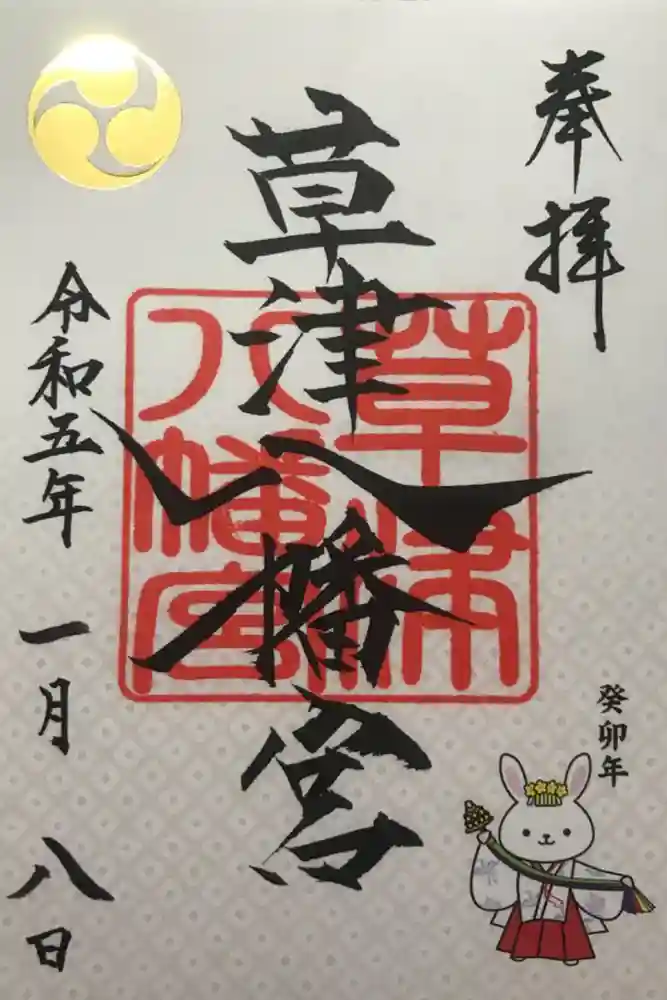 奉拝
草津八幡宮
草津
八幡宮
令和五年 一月 八日
癸卯年